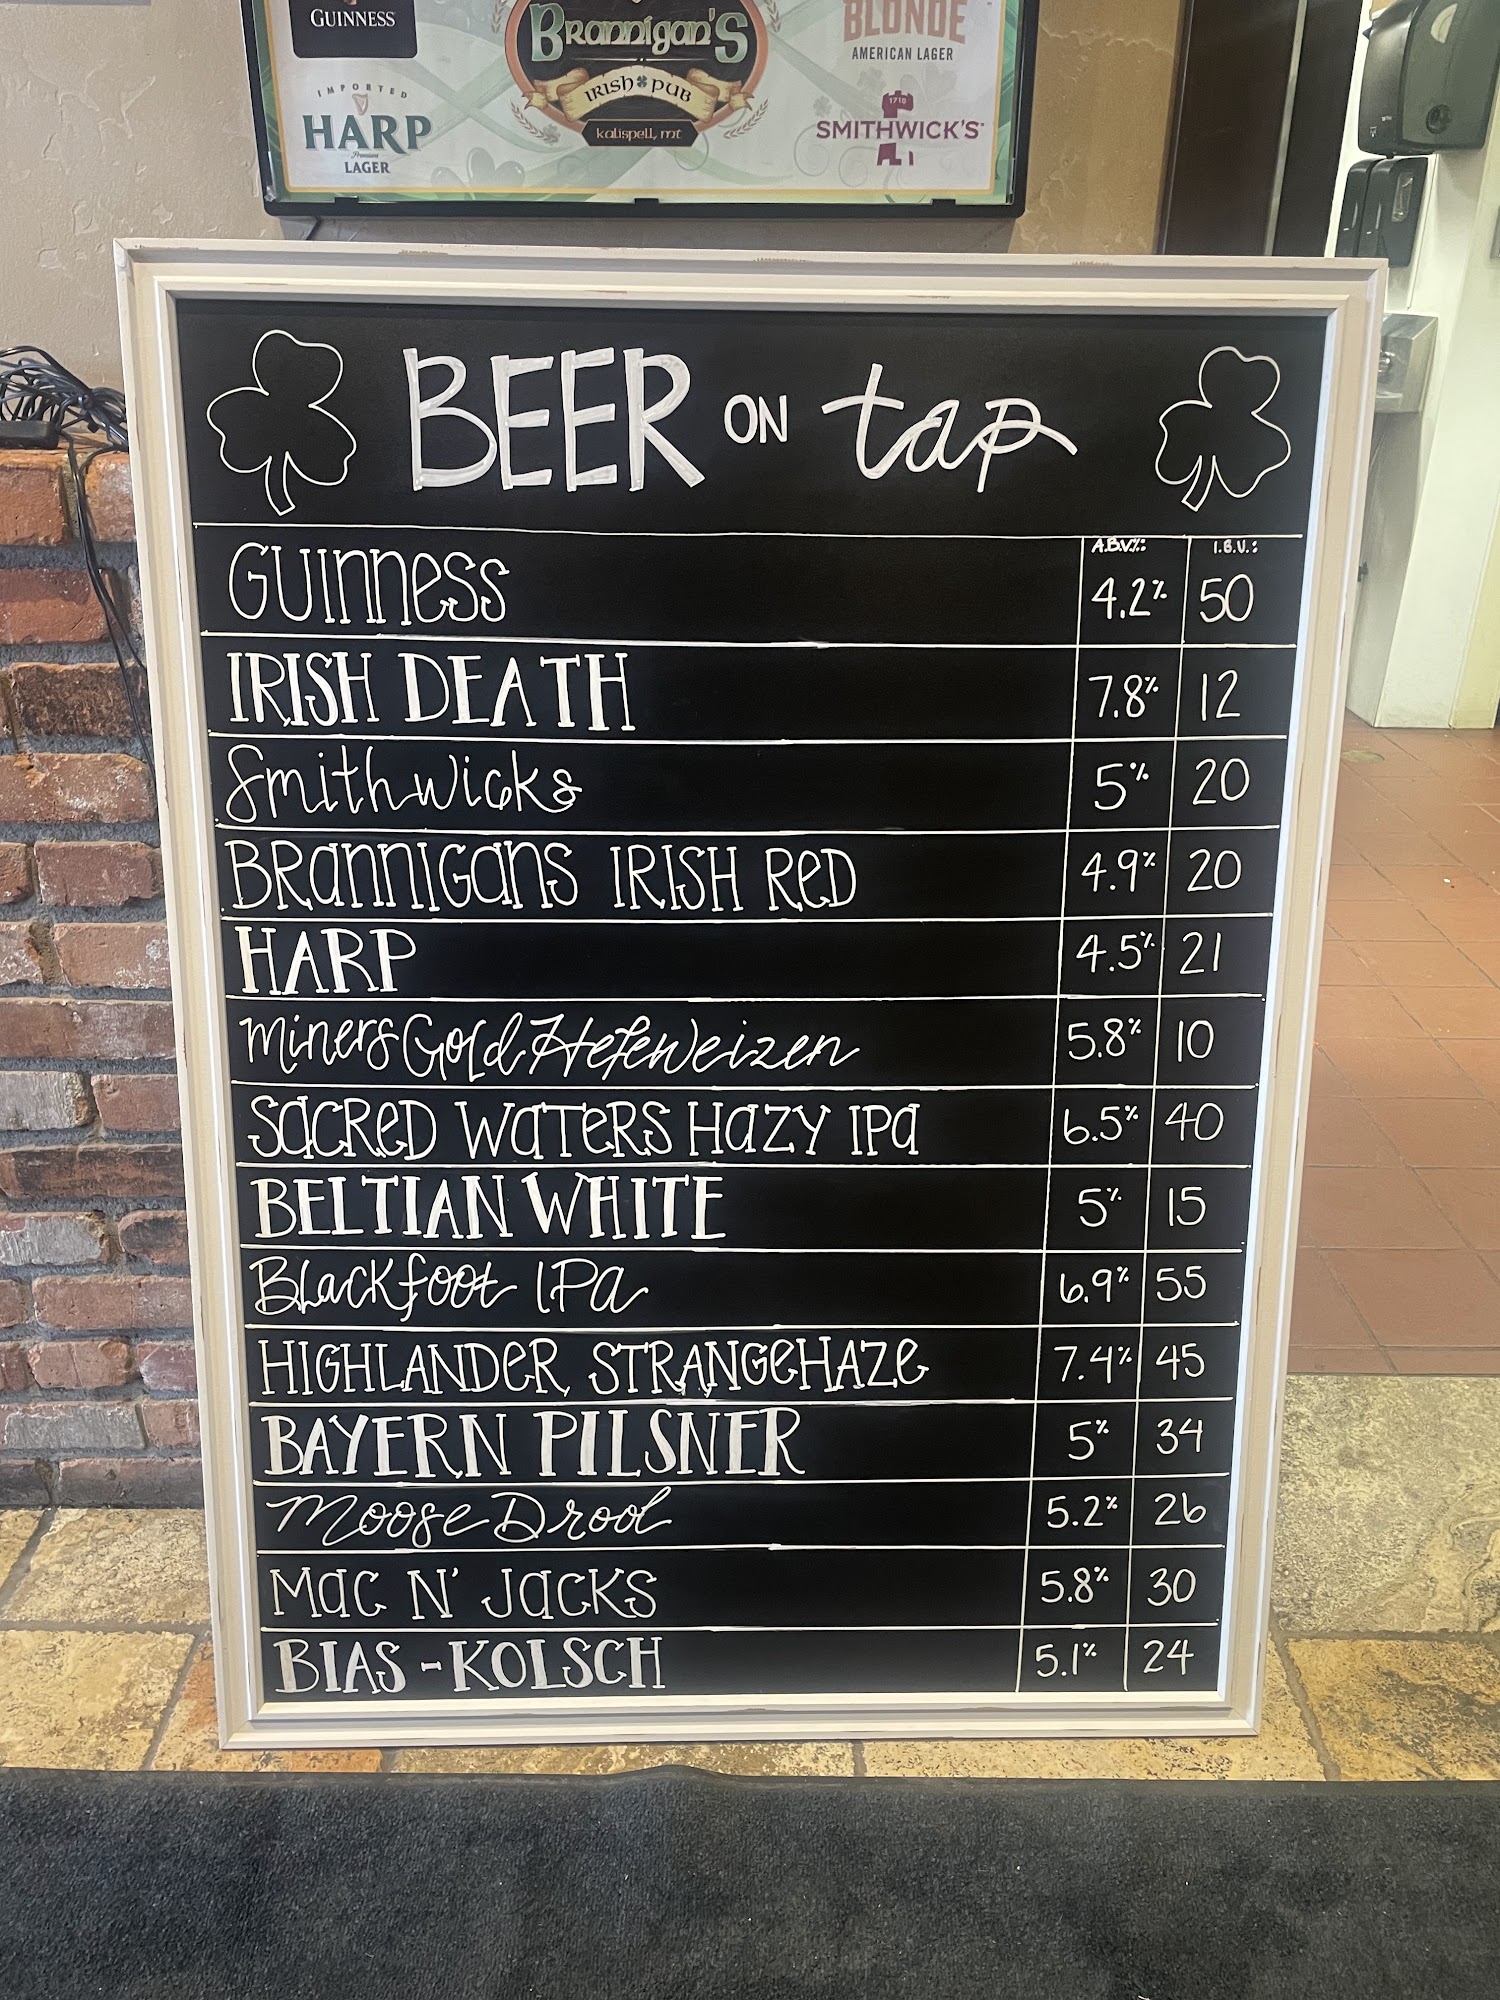 GUINNESS
BRANNIGAN'S
IRISH PUB
kalispell, mt
BLONDE
AMERICAN LAGER
IMPORTED
HARP
Premium
LAGER
1710
SMITHWICK'S
BEER ON tap
A.B.V.%: I.B.U.:
GUINNESS 4.2% 50
IRISH DEATH 7.8% 12
Smithwicks 5% 20
BRANNIGANS IRISH RED 4.9% 20
HARP 4.5% 21
Miners Gold Hefeweizen 5.8% 10
SACRED WATERS HAZY IPA 6.5% 40
BELTIAN WHITE 5% 15
Blackfoot IPA 6.9% 55
HIGHLANDER STRANGEHAZE 7.4% 45
BAYERN PILSNER 5% 34
Moose Drool 5.2% 26
MAC N' JACKS 5.8% 30
BIAS - KOLSCH 5.1% 24